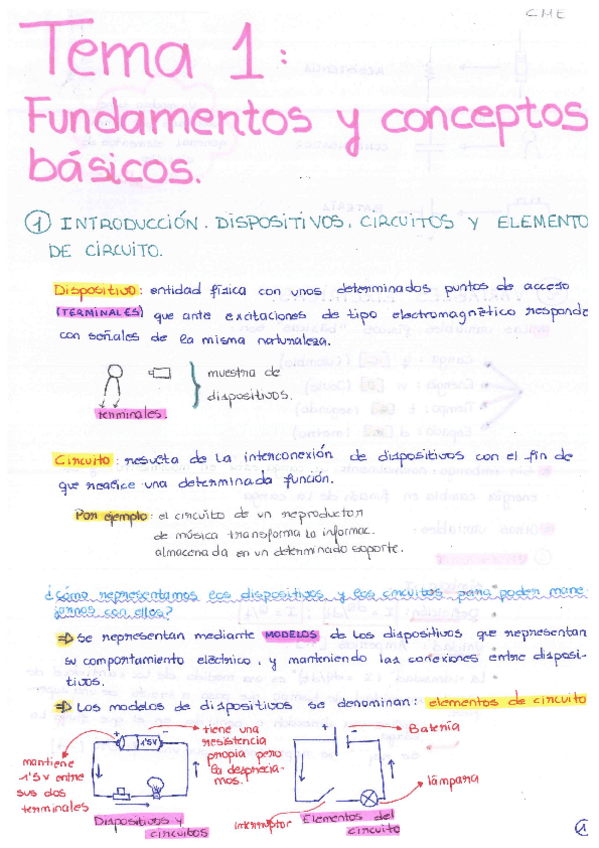 CME
Tema 1:
Fundamentos y conceptos
básicos.
① INTRODUCCIÓN. DISPOSITIVOS, CIRCUITOS Y ELEMENTO
DE CIRCUITO.
Dispositivo: entidad física con unos determinados puntos de acceso
(TERMINALES) que ante excitaciones de tipo electromagnético responde
con señales de la misma naturaleza.
muestra de
dispositivos.
terminales.
Circuito: resulta de la interconexión de dispositivos con el fin de
que realice una determinada función.
Por ejemplo: el circuito de un reproductor
de música transforma la informac.
almacenada en un determinado soporte.
¿Cómo representamos los dispositivos y los circuitos para poder mane-
jarnos con ellos?
⇒ Se representan mediante MODELOS de los dispositivos que representan
su comportamiento eléctrico, y manteniendo las conexiones entre disposi-
tivos.
⇒ Los modelos de dispositivos se denominan: elementos de circuito
mantiene
1'5v entre
sus dos
terminales
+ - 1'5V
tiene una
resistencia
propia pero
la desprecia-
mos.
Dispositivos y
circuitos
+ -
Batería
lámpara
interruptor
Elementos del
circuito
1